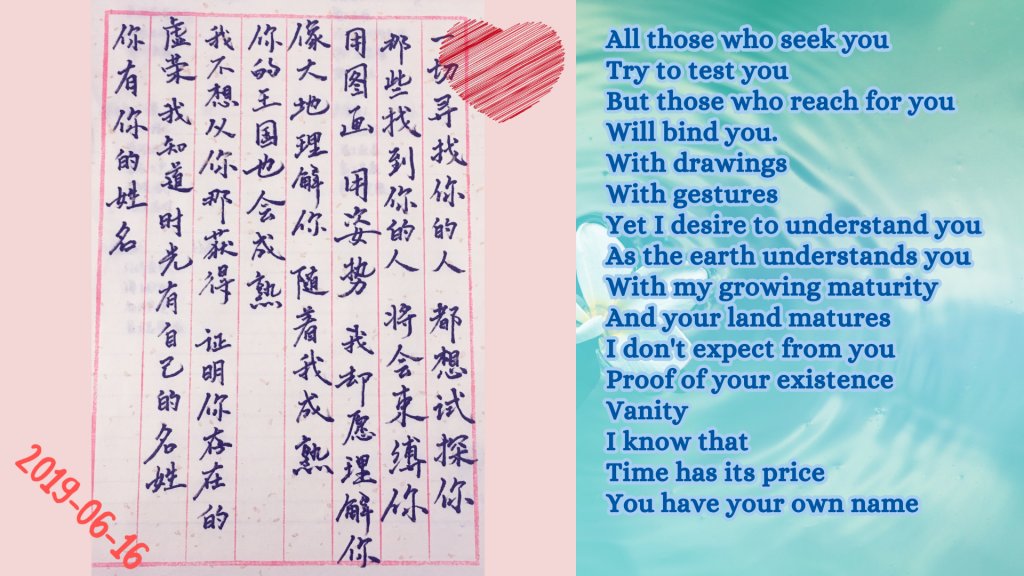 一切寻找你的人 都想试探你
那些找到你的人 将会束缚你
用图画 用姿势 我却愿理解你
像大地理解你 随着我成熟
你的王国也会成熟
我不想从你那获得 证明你存在的
虚荣 我知道 时光有自己的名姓
你有你的姓名
2019-06-16
All those who seek you
Try to test you
But those who reach for you
Will bind you.
With drawings
With gestures
Yet I desire to understand you
As the earth understands you
With my growing maturity
And your land matures
I don't expect from you
Proof of your existence
Vanity
I know that
Time has its price
You have your own name